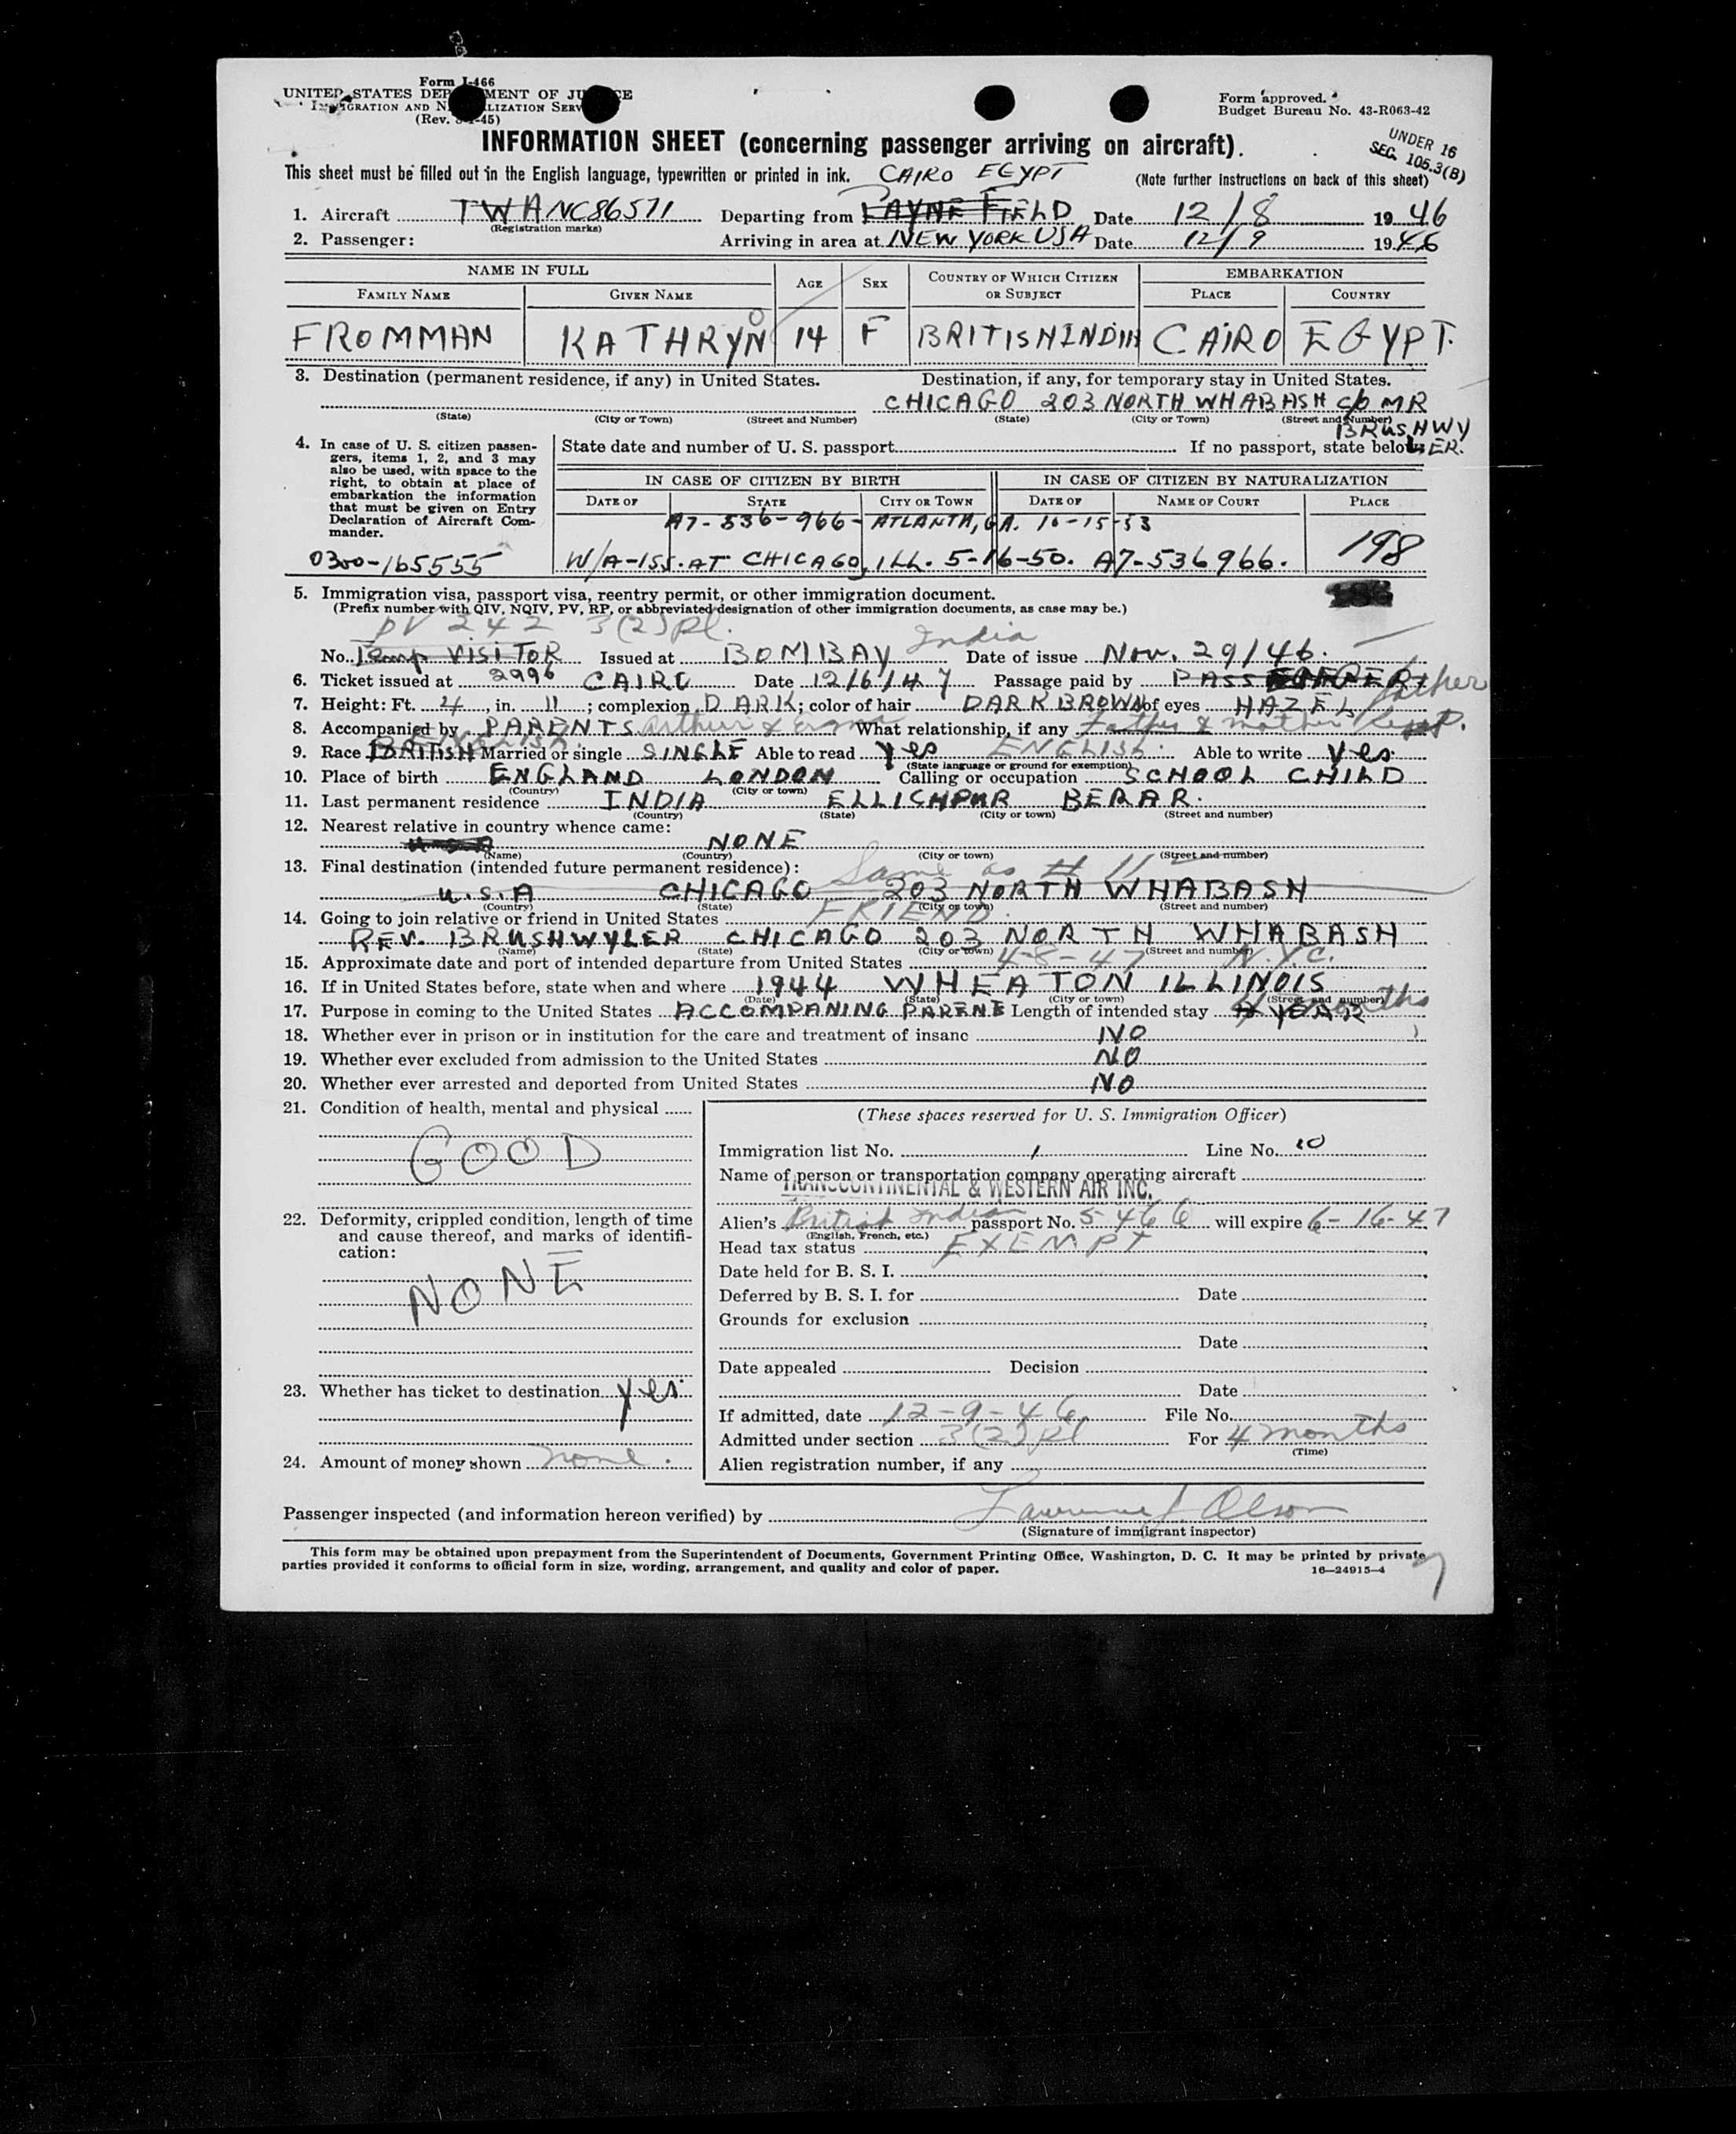 Form I-466
UNITED STATES DEP MENT OF JU CE
IGRATION AND N LIZATION SERV
(Rev. -45)
Form approved.
Budget Bureau No. 43-R063-42
INFORMATION SHEET (concerning passenger arriving on aircraft).
UNDER 16
SEC. 105.3(B)
This sheet must be filled out in the English language, typewritten or printed in ink. CAIRO EGYPT (Note further instructions on back of this sheet)
1. Aircraft TWA NC86571 Departing from PAYNE FIELD Date 12/8 1946
(Registration marks)
2. Passenger: Arriving in area at NEW YORK USA Date 12/9 1946
NAME IN FULL AGE SEX COUNTRY OF WHICH CITIZEN OR SUBJECT EMBARKATION
FAMILY NAME GIVEN NAME PLACE COUNTRY
FROMMAN KATHRYN 14 F BRITISH INDIA CAIRO EGYPT.
3. Destination (permanent residence, if any) in United States. Destination, if any, for temporary stay in United States.
CHICAGO 203 NORTH WHABASH c/o MR
(State) (City or Town) (Street and Number) (State) (City or Town) (Street and Number)
BRUSHWY
LER.
4. In case of U. S. citizen passengers, items 1, 2, and 3 may also be used, with space to the right, to obtain at place of embarkation the information that must be given on Entry Declaration of Aircraft Commander.
State date and number of U. S. passport If no passport, state below:
IN CASE OF CITIZEN BY BIRTH IN CASE OF CITIZEN BY NATURALIZATION
DATE OF STATE CITY OR TOWN DATE OF NAME OF COURT PLACE
A7-536-966- ATLANTA, GA. 10-15-53
0300-165555 W/A-ISS. AT CHICAGO, ILL. 5-16-50. A7-536966. 198
5. Immigration visa, passport visa, reentry permit, or other immigration document.
(Prefix number with QIV, NQIV, PV, RP, or abbreviated designation of other immigration documents, as case may be.)
PV 242 3(2)Pl. India
No. Temp VISITOR Issued at BOMBAY Date of issue Nov. 29/46.
6. Ticket issued at 2996 CAIRO Date 12/6/47 Passage paid by father
7. Height: Ft. 4, in. 11; complexion DARK; color of hair DARK BROWN of eyes HAZEL
8. Accompanied by PARENTS Arthur & Erma What relationship, if any Father & mother Resp.
9. Race BRITISH ENGLISH Married or single SINGLE Able to read yes ENGLISH. Able to write yes.
(State language or ground for exemption)
10. Place of birth ENGLAND LONDON Calling or occupation SCHOOL CHILD
(Country) (City or town)
11. Last permanent residence INDIA ELLICHPUR BERAR.
(Country) (State) (City or town) (Street and number)
12. Nearest relative in country whence came:
U.S.A NONE
(Name) (Country) (City or town) (Street and number)
13. Final destination (intended future permanent residence): Same as # 11
U.S.A CHICAGO 203 NORTH WHABASH
(Country) (State) (City or town) (Street and number)
14. Going to join relative or friend in United States FRIEND.
REV. BRUSHWYLER CHICAGO 203 NORTH WHABASH
(Name) (State) (City or town) (Street and number)
15. Approximate date and port of intended departure from United States 4-8-47 N.Y.C.
16. If in United States before, state when and where 1944 WHEATON ILLINOIS
(Date) (State) (City or town) (Street and number)
17. Purpose in coming to the United States ACCOMPANING PARENTS Length of intended stay YEAR 4 months
18. Whether ever in prison or in institution for the care and treatment of insane NO
19. Whether ever excluded from admission to the United States NO
20. Whether ever arrested and deported from United States NO
21. Condition of health, mental and physical
GOOD
22. Deformity, crippled condition, length of time and cause thereof, and marks of identification:
NONE
23. Whether has ticket to destination yes.
24. Amount of money shown none.
(These spaces reserved for U. S. Immigration Officer)
Immigration list No. 1 Line No. 10
Name of person or transportation company operating aircraft
TRANSCONTINENTAL & WESTERN AIR INC.
Alien's British Indian passport No. 5466 will expire 6-16-47
(English, French, etc.)
Head tax status EXEMPT
Date held for B. S. I.
Deferred by B. S. I. for Date
Grounds for exclusion
Date
Date appealed Decision
Date
If admitted, date 12-9-46 File No.
Admitted under section 3(2)Pl For 4 months
(Time)
Alien registration number, if any
Passenger inspected (and information hereon verified) by Lawrence J. Olson
(Signature of immigrant inspector)
This form may be obtained upon prepayment from the Superintendent of Documents, Government Printing Office, Washington, D. C. It may be printed by private
parties provided it conforms to official form in size, wording, arrangement, and quality and color of paper. 16—24915-4